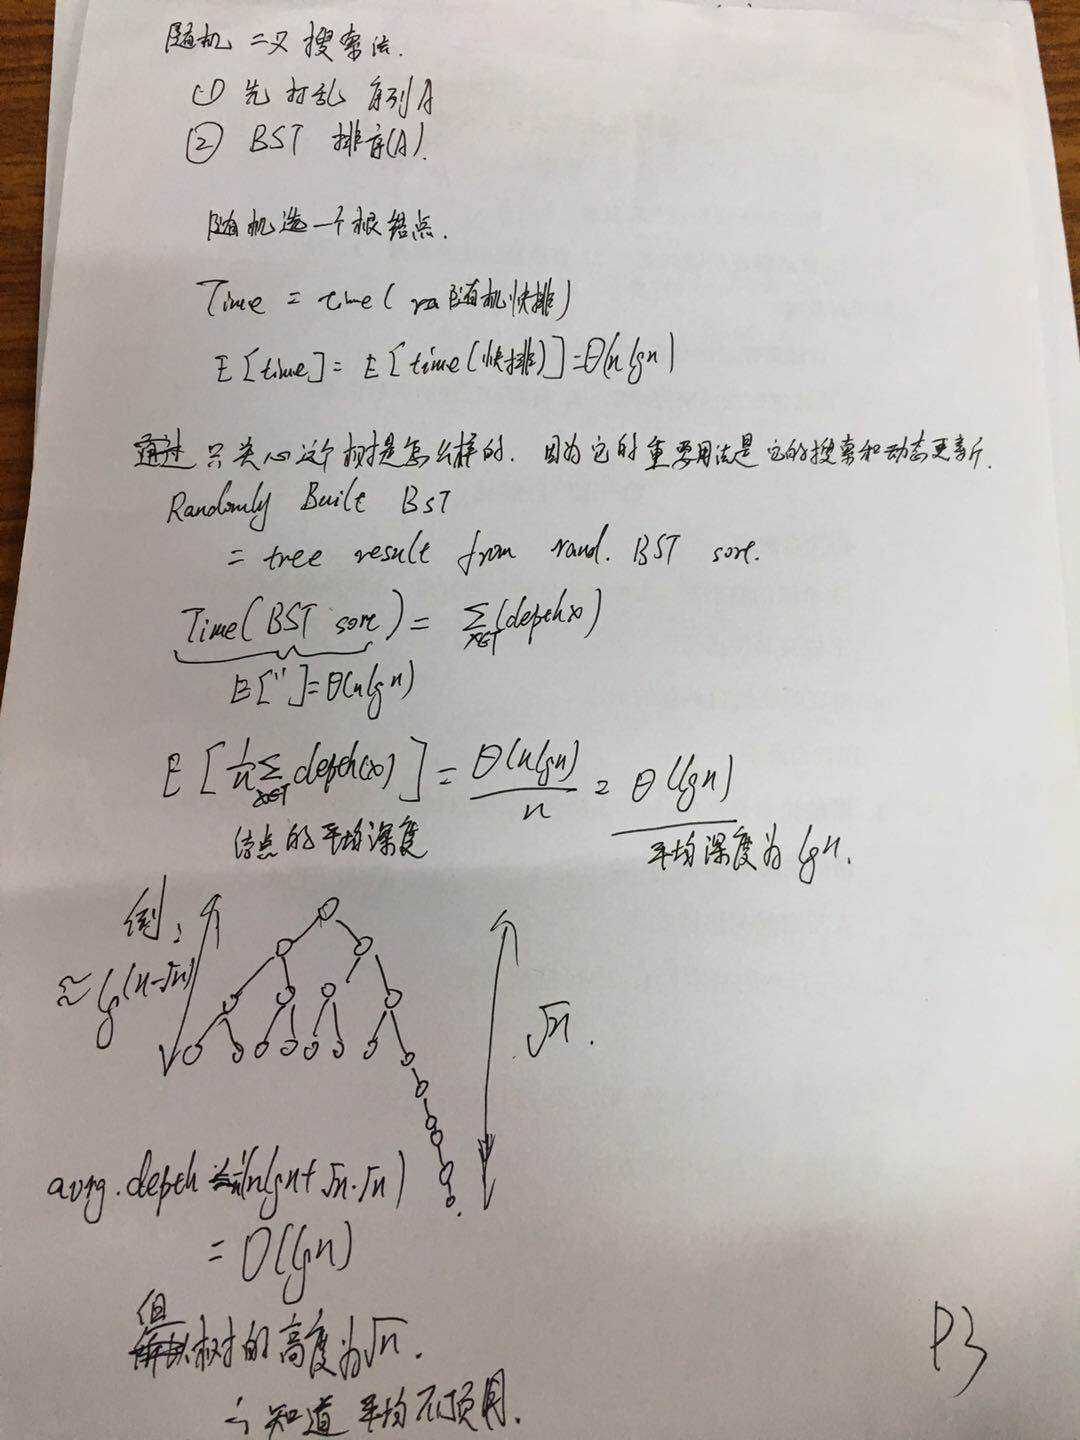 随机二叉搜索法.
① 先打乱序列A
② BST 排序(A).
随机选一个根结点.
Time = time( ra随机快排)
E[time] = E[time(快排)] = Θ(n lg n)
通过 只关心这个树是怎么样的. 因为它的重要用法是它的搜索和动态更新.
Randomly Built BST
= tree result from rand. BST sort.
Time(BST sort) = Σ(depth x)
x∈T
E["] = Θ(n lg n)
E[1/n Σ depth(x)] = Θ(n lg n)/n = Θ(lg n)
x∈T
结点的平均深度
平均深度为 lg n.
例:
≈ lg(n-√n)
√n.
avrg.depth ≤ 1/n(n lg n + √n·√n)
= O(lg n)
但
树的高度为√n.
∴知道平均不顶用.
P3